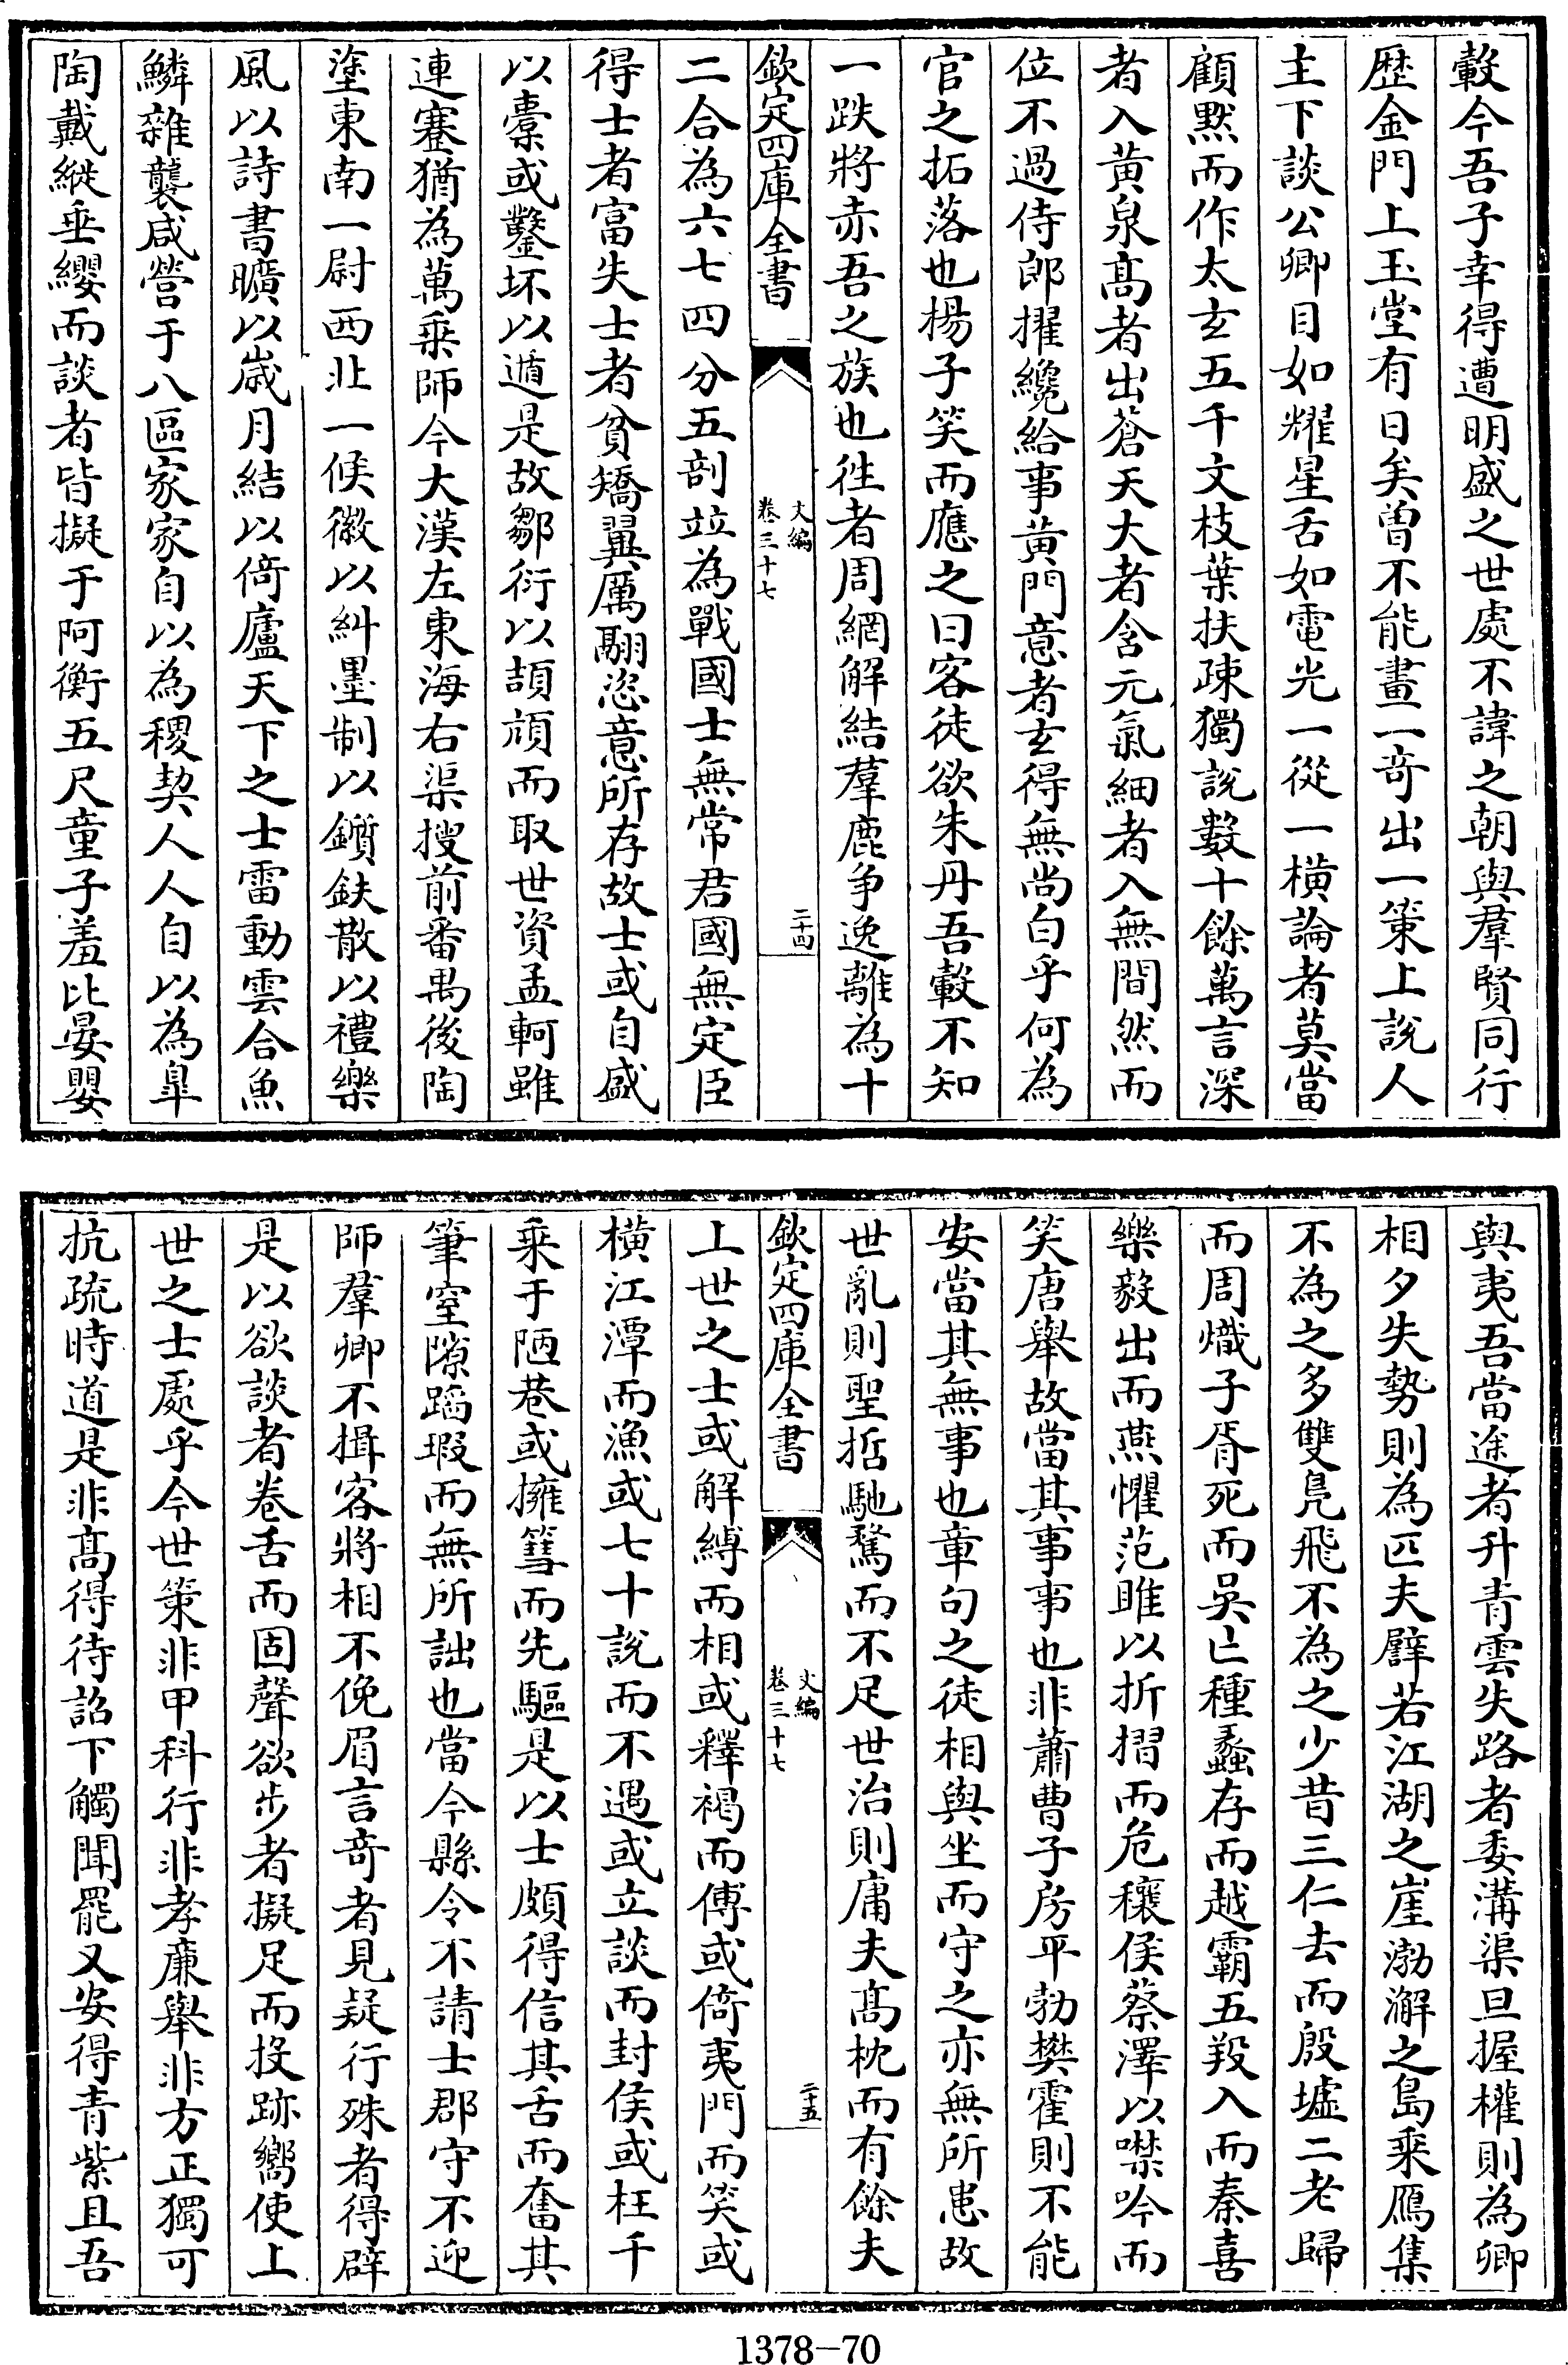 轂今吾子幸得遭明盛之世處不諱之朝與羣賢同行
歴金門上玉堂有日矣曽不能畫一竒出一䇿上說人
主下談公卿目如耀星舌如電光一從一橫論者莫當
顧黙而作太玄五千文枝葉扶疎獨說數十餘萬言深
者入黄泉髙者出蒼天大者含元氣細者入無間然而
位不過侍郎擢纔給事黄門意者玄得無尚白乎何為
官之拓落也楊子笑而應之曰客徒欲朱丹吾轂不知
一跌將赤吾之族也徃者周網解結羣鹿争逸離為十
欽定四庫全書
文編
卷三十七
二十四
二合為六七四分五剖竝為戰國士無常君國無定臣
得士者富失士者貧矯翼厲翮恣意所存故士或自盛
以橐或鑿坏以遁是故鄒衍以頡頏而取世資孟軻雖
連蹇猶為萬乗師今大漢左東海右渠搜前番禺後陶
塗東南一尉西北一候徽以糾墨制以鑕鈇散以禮樂
風以詩書曠以歲月結以倚廬天下之士雷動雲合魚
鱗雜襲咸營于八區家家自以為稷契人人自以為臯
陶戴縰垂纓而談者皆擬于阿衡五尺童子羞比晏嬰
與夷吾當途者升青雲失路者委溝渠旦握權則為卿
相夕失勢則為匹夫譬若江湖之崖渤澥之島乗鴈集
不為之多雙鳬飛不為之少昔三仁去而殷墟二老歸
而周熾子胥死而吳亡種蠡存而越霸五羖入而秦喜
樂毅出而燕懼范雎以折摺而危穰侯蔡澤以噤吟而
笑唐舉故當其事事也非蕭曹子房平勃樊霍則不能
安當其無事也章句之徒相與坐而守之亦無所患故
世亂則聖哲馳騖而不足世治則庸夫髙枕而有餘夫
欽定四庫全書
文編
卷三十七
二十五
上世之士或解縛而相或釋褐而傅或倚夷門而笑或
橫江潭而漁或七十說而不遇或立談而封侯或枉千
乗于陋巷或擁篲而先驅是以士頗得信其舌而奮其
筆窒隙蹈瑕而無所詘也當今縣令不請士郡守不迎
師羣卿不揖客將相不俛眉言竒者見疑行殊者得辟
是以欲談者卷舌而固聲欲步者擬足而投跡嚮使上
世之士處乎今世䇿非甲科行非孝廉舉非方正獨可
抗疏時道是非髙得待詔下觸聞罷又安得青紫且吾
1378-70